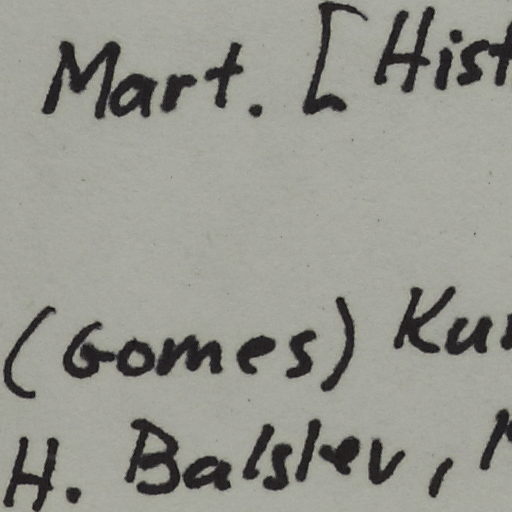 Mart. [Hist
(Gomes) Kun
H. Balslev,